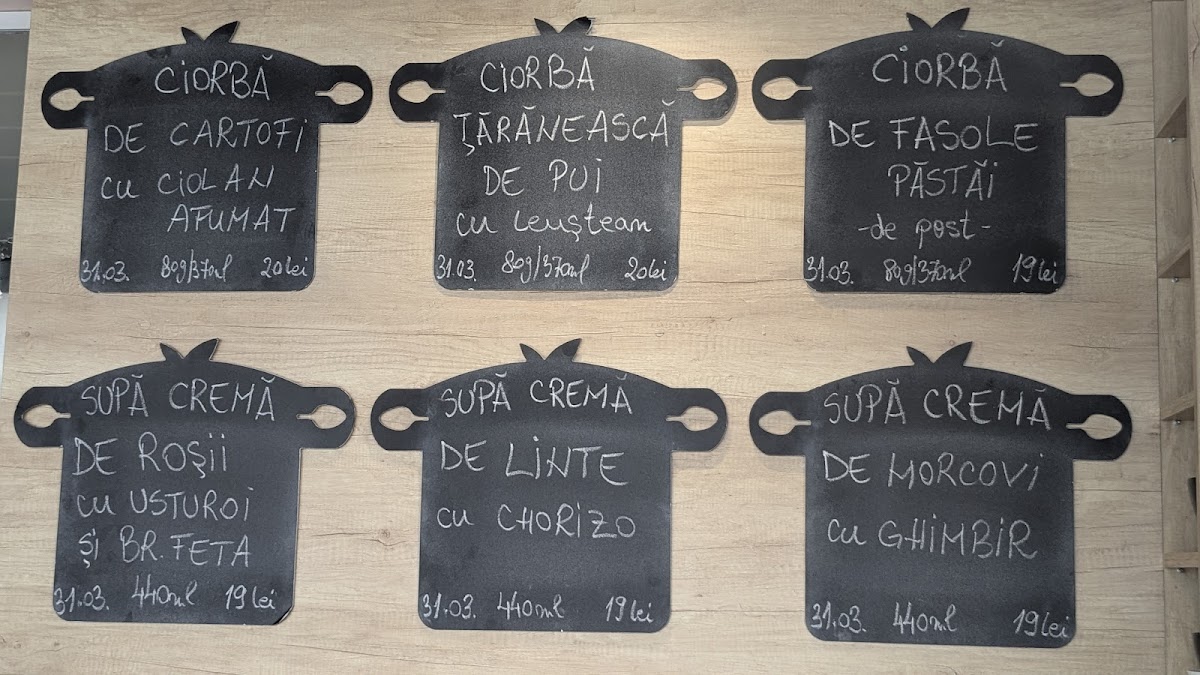 CIORBĂ
DE CARTOFI
cu CIOLAN
AFUMAT
31.03. 80g/370ml 20 lei
CIORBĂ
ȚĂRĂNEASCĂ
DE PUI
cu leuștean
31.03. 80g/370ml 20 lei
CIORBĂ
DE FASOLE
PĂSTĂI
-de post-
31.03. 80g/370ml 19 lei
SUPĂ CREMĂ
DE ROȘII
cu USTUROI
ȘI BR. FETA
31.03. 440ml 19 lei
SUPĂ CREMĂ
DE LINTE
cu CHORIZO
31.03. 440ml 19 lei
SUPĂ CREMĂ
DE MORCOVI
cu GHIMBIR
31.03. 440ml 19 lei